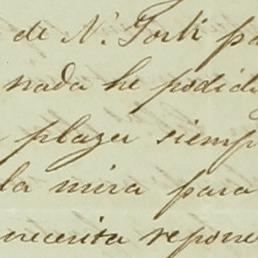 de N. York pa
nada he podid
plazer siemp
la mira para
necesita repone